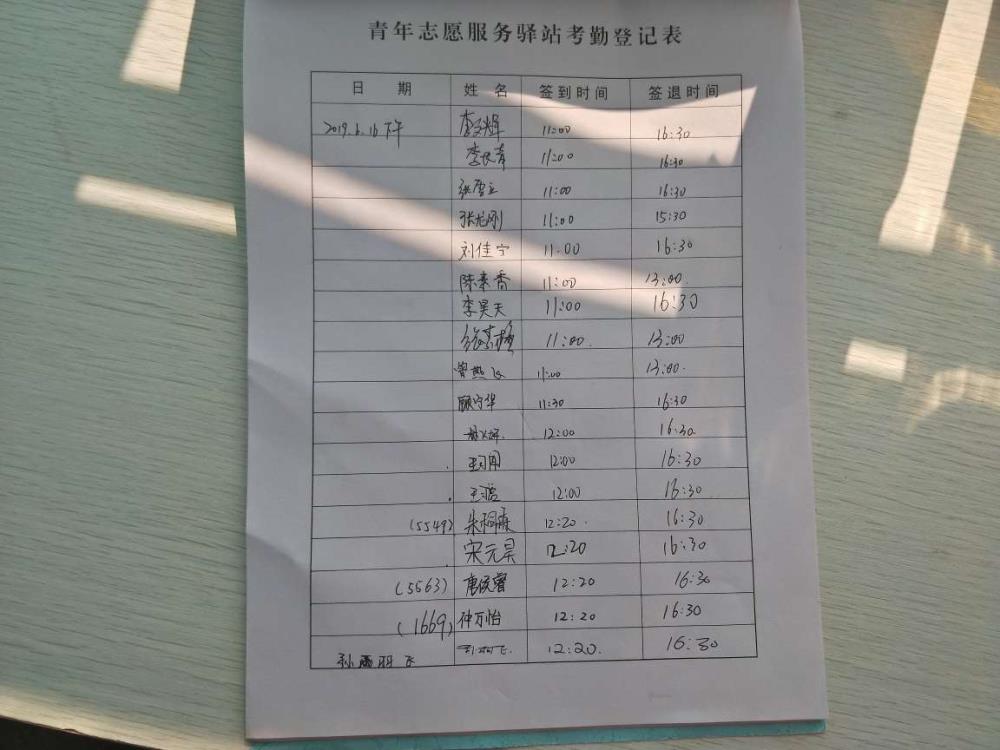 青年志愿服务驿站考勤登记表
日 期 姓 名 签到时间 签退时间
2019.6.16下午 李文辉 11:00 16:30
李长青 11:00 16:30
张雪立 11:00 16:30
张龙刚 11:00 15:30
刘佳宁 11:00 16:30
陈素香 11:00 13:00
李昊天 11:00 16:30
11:00 13:00
曾燕飞 11:00 13:00
顾宁华 11:30 16:30
12:00 16:30
12:00 16:30
王 12:00 16:30
(5549) 朱 12:20 16:30
宋元昊 12:20 16:30
(5563) 唐 12:20 16:30
(1669) 仲万怡 12:20 16:30
孙雨羽飞 12:20 16:30